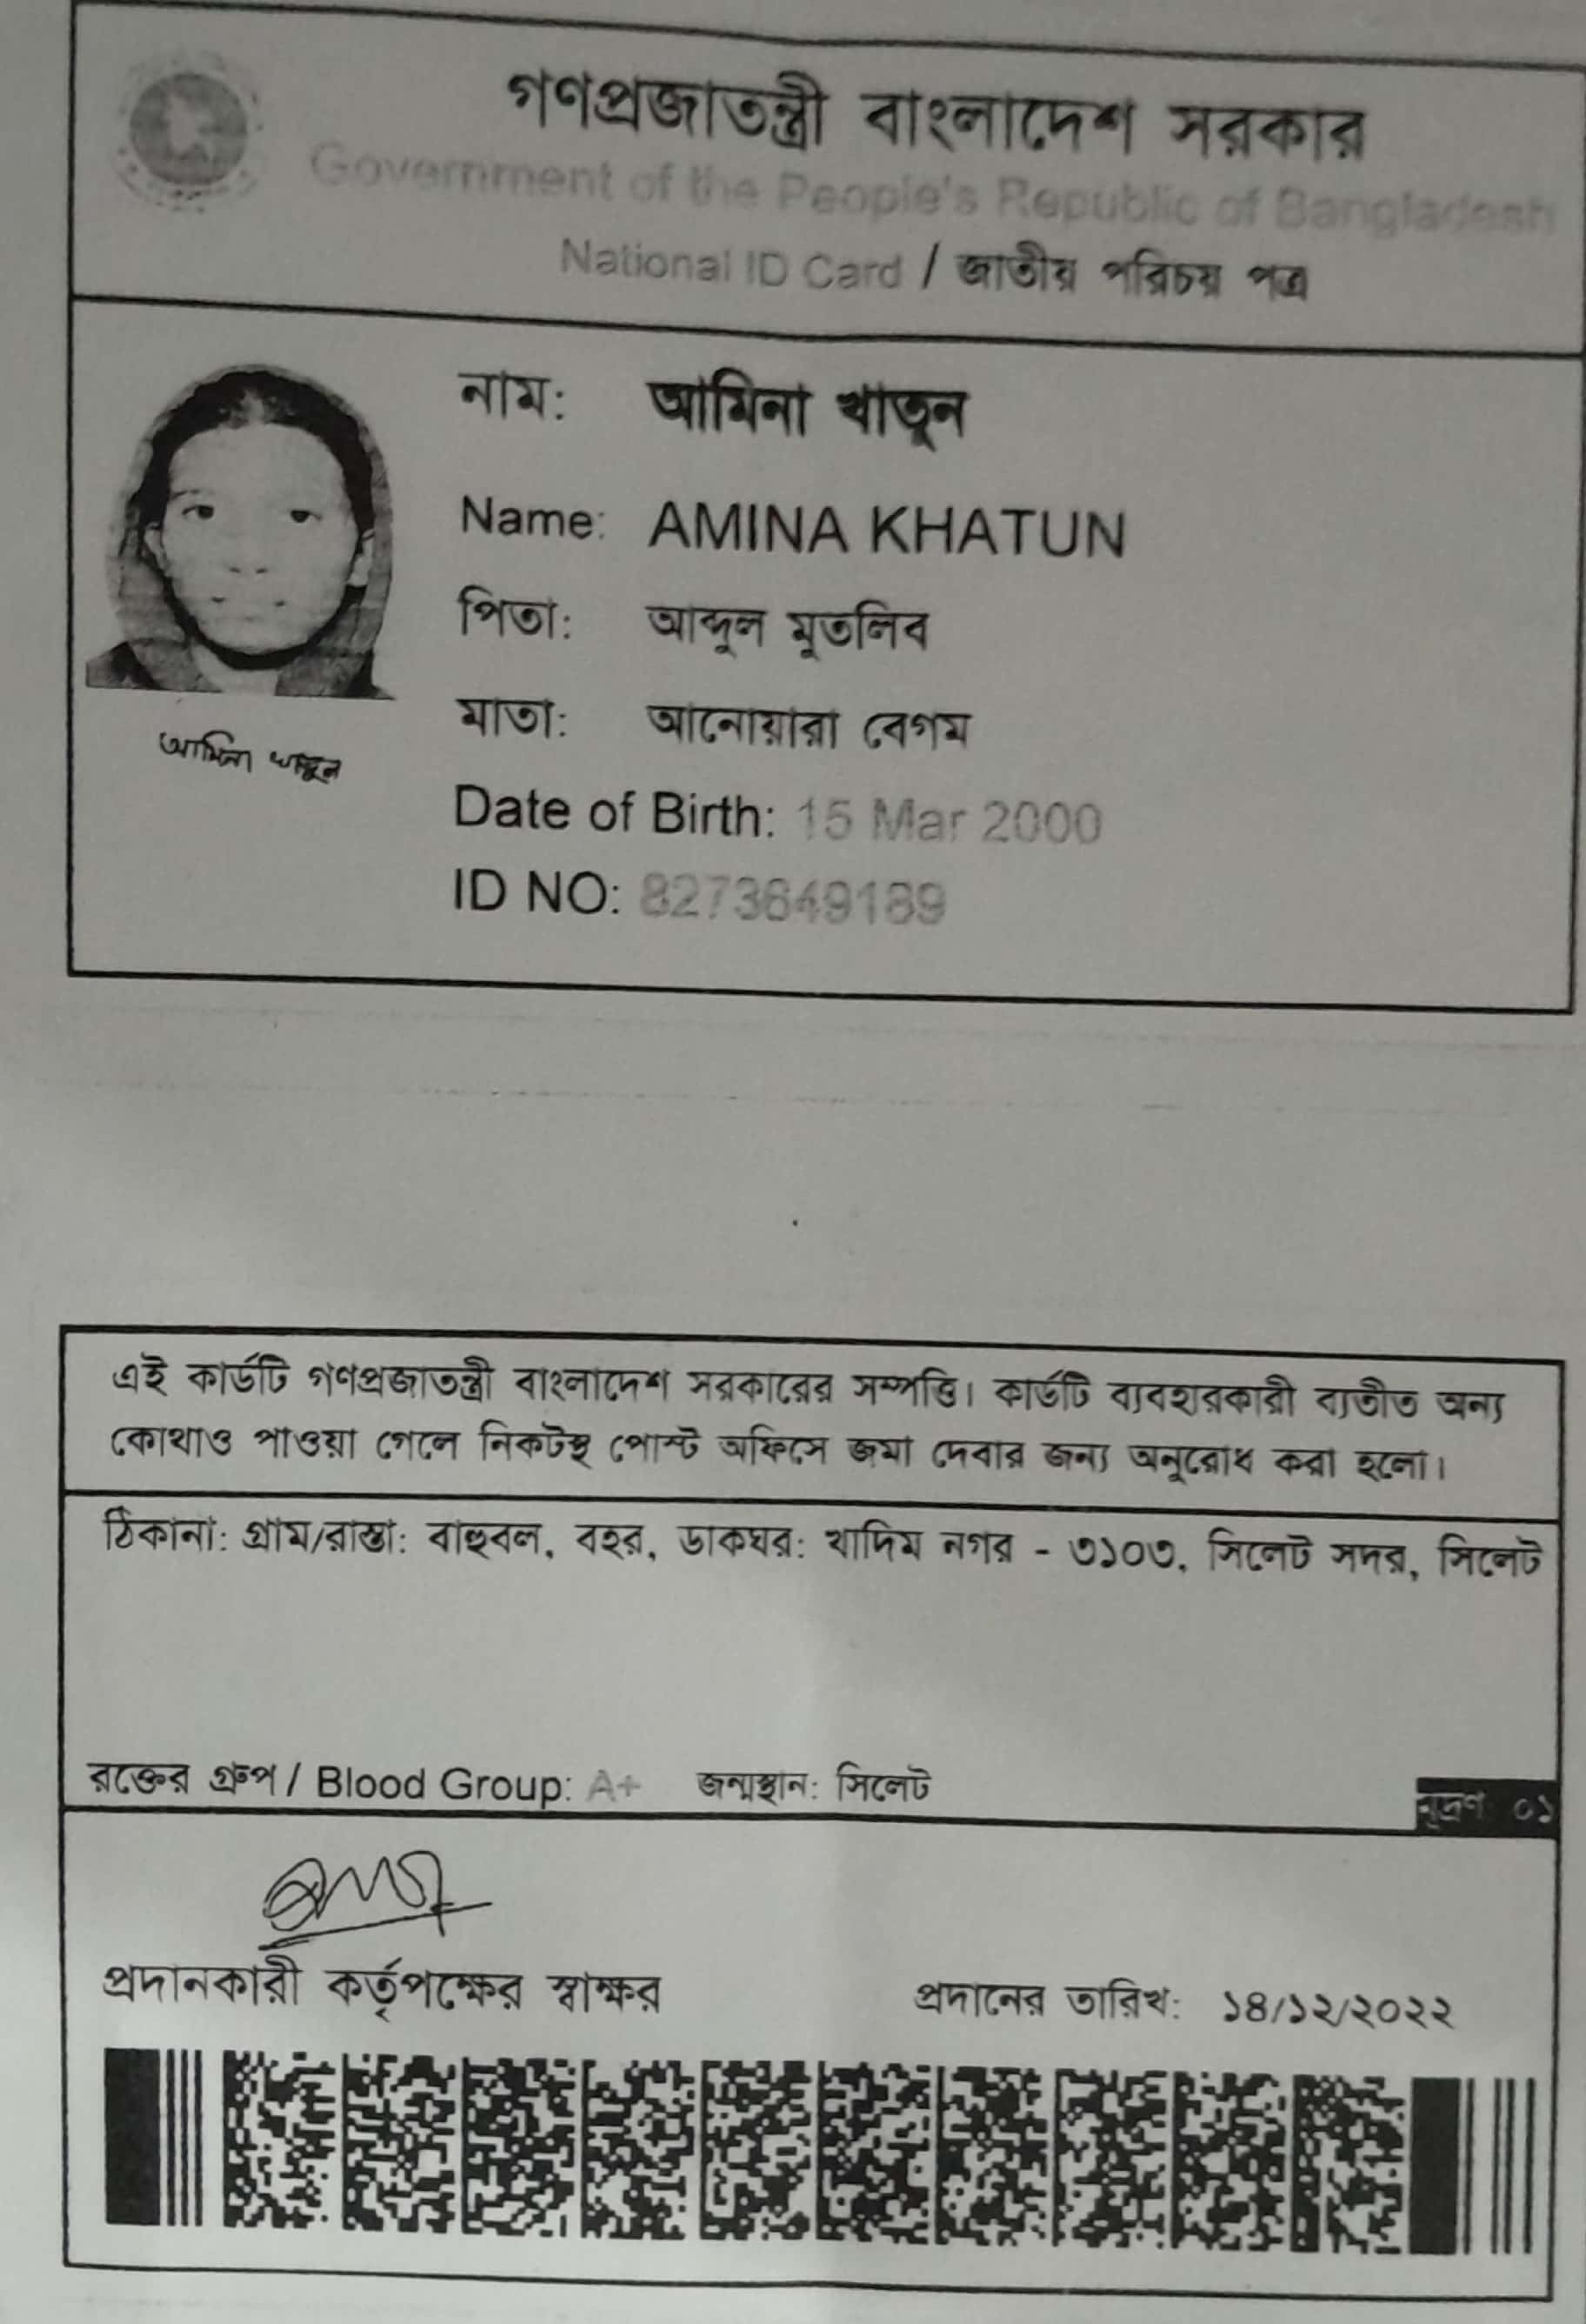 গণপ্রজাতন্ত্রী বাংলাদেশ সরকার
Government of the People's Republic of Bangladesh
National ID Card / জাতীয় পরিচয় পত্র
নাম: আমিনা খাতুন
Name: AMINA KHATUN
পিতা: আব্দুল মুতলিব
মাতা: আনোয়ারা বেগম
আমিনা খাতুন
Date of Birth: 15 Mar 2000
ID NO: 8273649189
এই কার্ডটি গণপ্রজাতন্ত্রী বাংলাদেশ সরকারের সম্পত্তি। কার্ডটি ব্যবহারকারী ব্যতীত অন্য
কোথাও পাওয়া গেলে নিকটস্থ পোস্ট অফিসে জমা দেবার জন্য অনুরোধ করা হলো।
ঠিকানা: গ্রাম/রাস্তা: বাহুবল, বহর, ডাকঘর: খাদিম নগর - ৩১০৩, সিলেট সদর, সিলেট
রক্তের গ্রুপ / Blood Group: A+ জন্মস্থান: সিলেট
মুদ্রণ ০১
প্রদানকারী কর্তৃপক্ষের স্বাক্ষর
প্রদানের তারিখ: ১৪/১২/২০২২